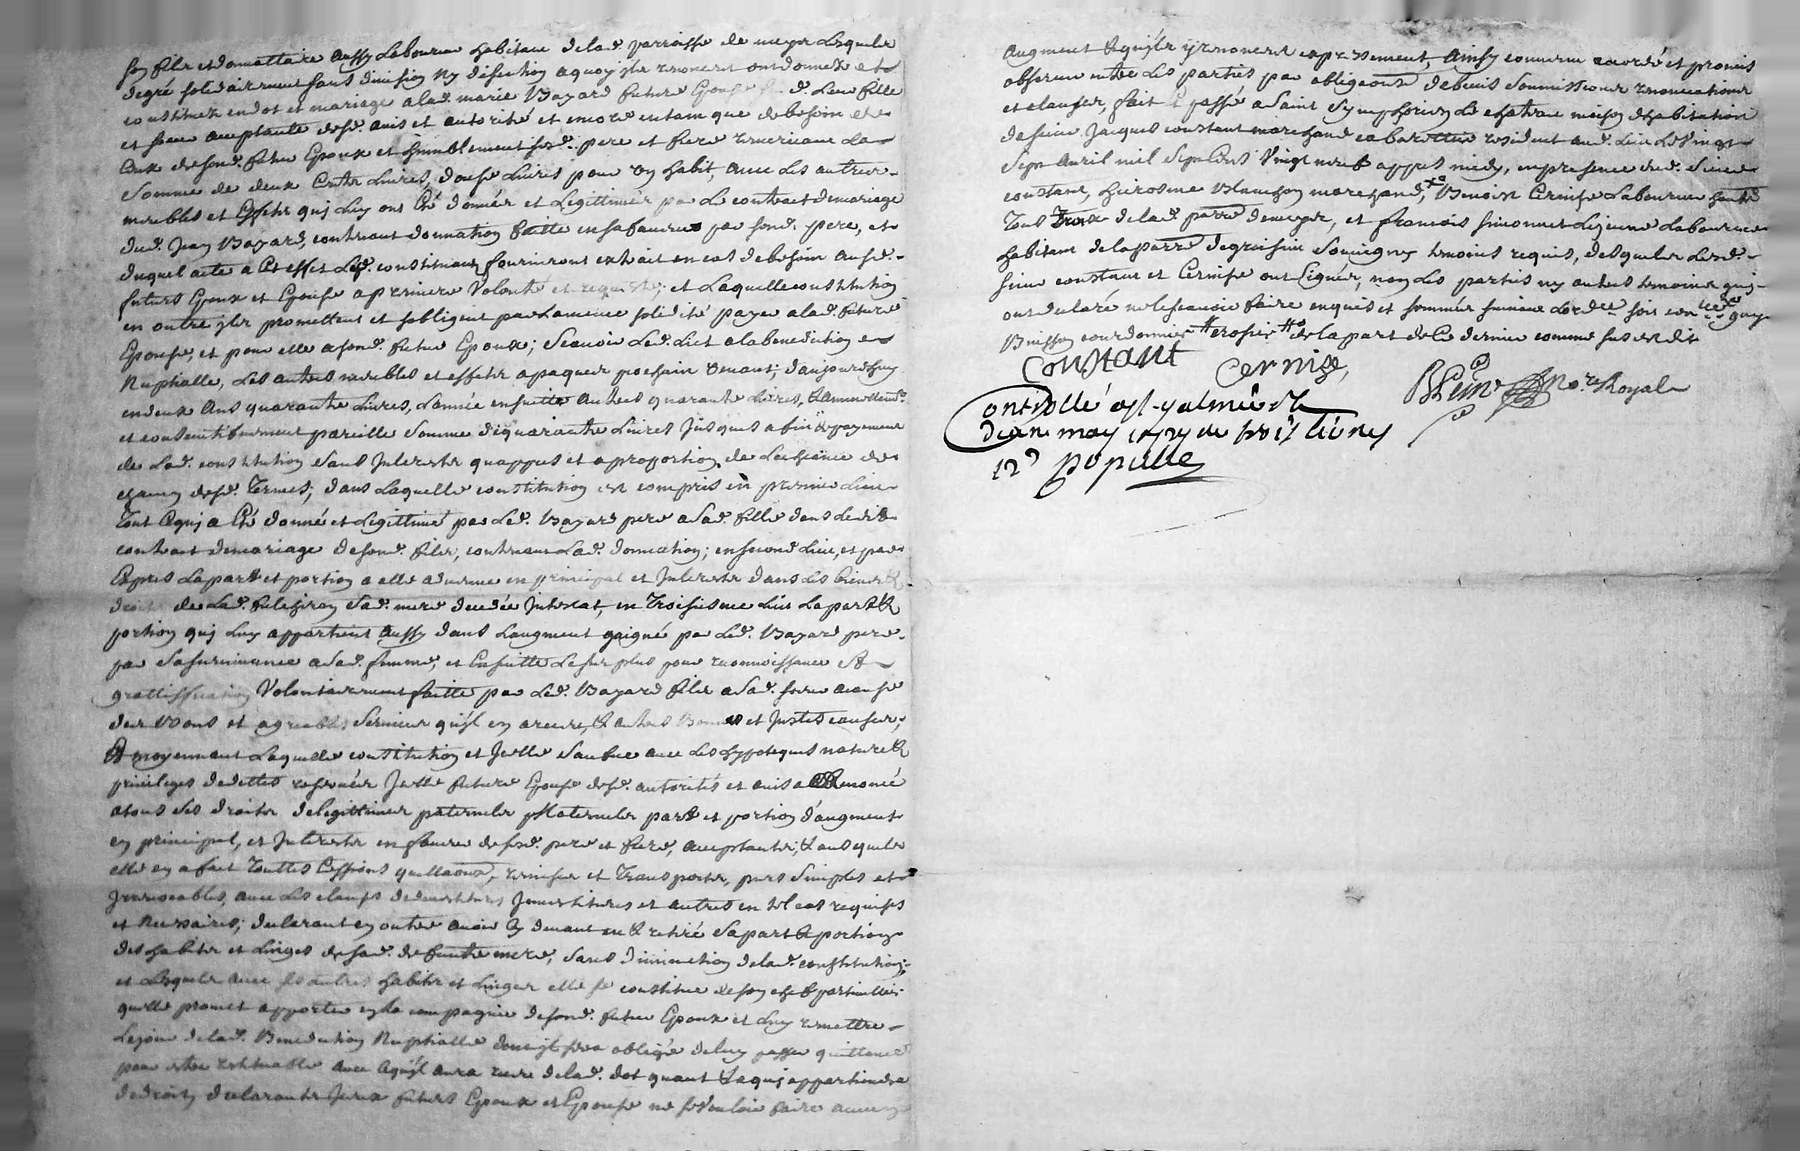 son fils et donnattaire aussy Laboureur habitant de lad. parroisse de meyer Lesquels
degré solidairement sans division ny discution a quoy ils renoncent ont donnés et
constitués en dot et mariage a lad. marie Bayard future Epouse d. Leur fille
et soeur acceptante desd. avis et autorité et encore entant que de besoin de
ceux de sond. futur Epoux et humblement sesd. pere et frere remerciant La
Somme de deux Cents Livres, douse Livres pour un habit, avec Les autres
meubles et Effets quj Luy ont été donnés et Legittimés par Le contract de mariage
dud. Jean Bayard, contenant donnation faitte en sa faveur par sond. pere, et
duquel acte a Cet effet Led. constituant fourniront extrait en cas de besoin ausd.
futurs Epoux et Epouse a premiere Volonté et requiste; et Laquelle constitution
en outre ils promettent et s'obligent par La meme solidité payer a lad. future
Epouse, et pour elle a sond. futur Epoux; Scavoir Led. Lict a la benediction
Nuptialle, Les autres meubles et effets a paques prochain venant; d'aujourd'huy
en deux Ans quarante Livres, L'année en suitte autres quarante Livres, & annuellement
et consecutivement pareille somme de quarante Livres Jusques a fin de payement
de Lad. constitution sans Interests qu'appres et a proportion de L'echeance de
chacun desd. Termes; dans Laquelle constitution est compris en premier Lieu
Tout Cequj a été donné et Legittimé par Led. Bayard pere a Sad. fille dans Ledit
contract de mariage de sond. fils, contenant Lad. donnation; en second Lieu, et par
Expres La part et portion a elle advenue en principal et Interests dans Les biens &
droits de Lad. sad. mere decedée Intestat, en Troisieme Lieu La part &
portion quj Luy appartient Aussy dans L'augment gaigné par Led. Bayard pere
par Sa survivance a Sad. femme, et Ensuitte Le surplus pour reconnoissance et
grattiffication Volontairement faitte par Led. Bayard fils a Sad. soeur a cause
des bons et agreables Services qu'il en a receus, & autres Bonnes et Justes causes;
Et moyennant Laquelle constitution et Jcelle Sauve avec Les hypoteques nature &
privileges de dettes reservés Jcelle future Epouse desd. autorités et avis a Renoncé
a tous Ses droits de legittimes paternels Maternels part et portion d'augment
en principal, et Interests en faveur de sesd. pere et frere, acceptants, & ausquels
elle en a fait Touttes Cessions quittances, remises et Transports, purs Simples et
Jrrevocables, avec Les clauses de devestitures Jnvestitures et autres en tel cas requises
et Necessaires; declarant en outre avoir cy devant eu & retiré Sa part & portion
des habits et Linges de sad. defunte mere, sans diminution de lad. constitution;
et Lesquels avec ses autres habits et Linges elle se constitue de son chef particulier
quelle promet apporter en la compagnie de sond. futur Epoux et Luy remettre
Le jour de lad. Benediction Nuptialle dont il sera obligé de luy passer quittance
pour estre restituable avec Ce qu'jl aura receu de lad. dot quant & a quj appartiendra
de droit, declarants Jceux futurs Epoux et Epouse ne se Vouloir faire aucun
Augment & qu'jls y renoncent expressement, Ainsy convenu accordé et promis
observer entre Les parties par obligations de biens Soumissions renonciations
et clauses, fait & passé a Saint Symphorien Le chateau maison d'habitation
de sieur Jacques constant marchand cabarettier resident aud. Lieu Le Vingt
Sept Avril mil Sept Cents Vingt neuf appres midy, en presence dud. Sieur
constant, hierosme Blanchon marchand, Benoist Cernise Laboureur habitants
Tous de lad. parre de meyer, et francois Simonnet Le jeune Laboureur
habitant de la parre de graisieu Souvigny temoins requis, desquels Lesd.
sieur constant et Cernise ont Signés, non Les parties ny autres temoins quj
ont declaré ne le scavoir faire enquis et sommés suivant Lordce.
Buisson cordonnier de la part de Ce dernier comme sus est dit
Constant Cernize,
No.re Royal
Controllé à St-galmier le
dix ne may 1729 Re trois livres
12 s populle